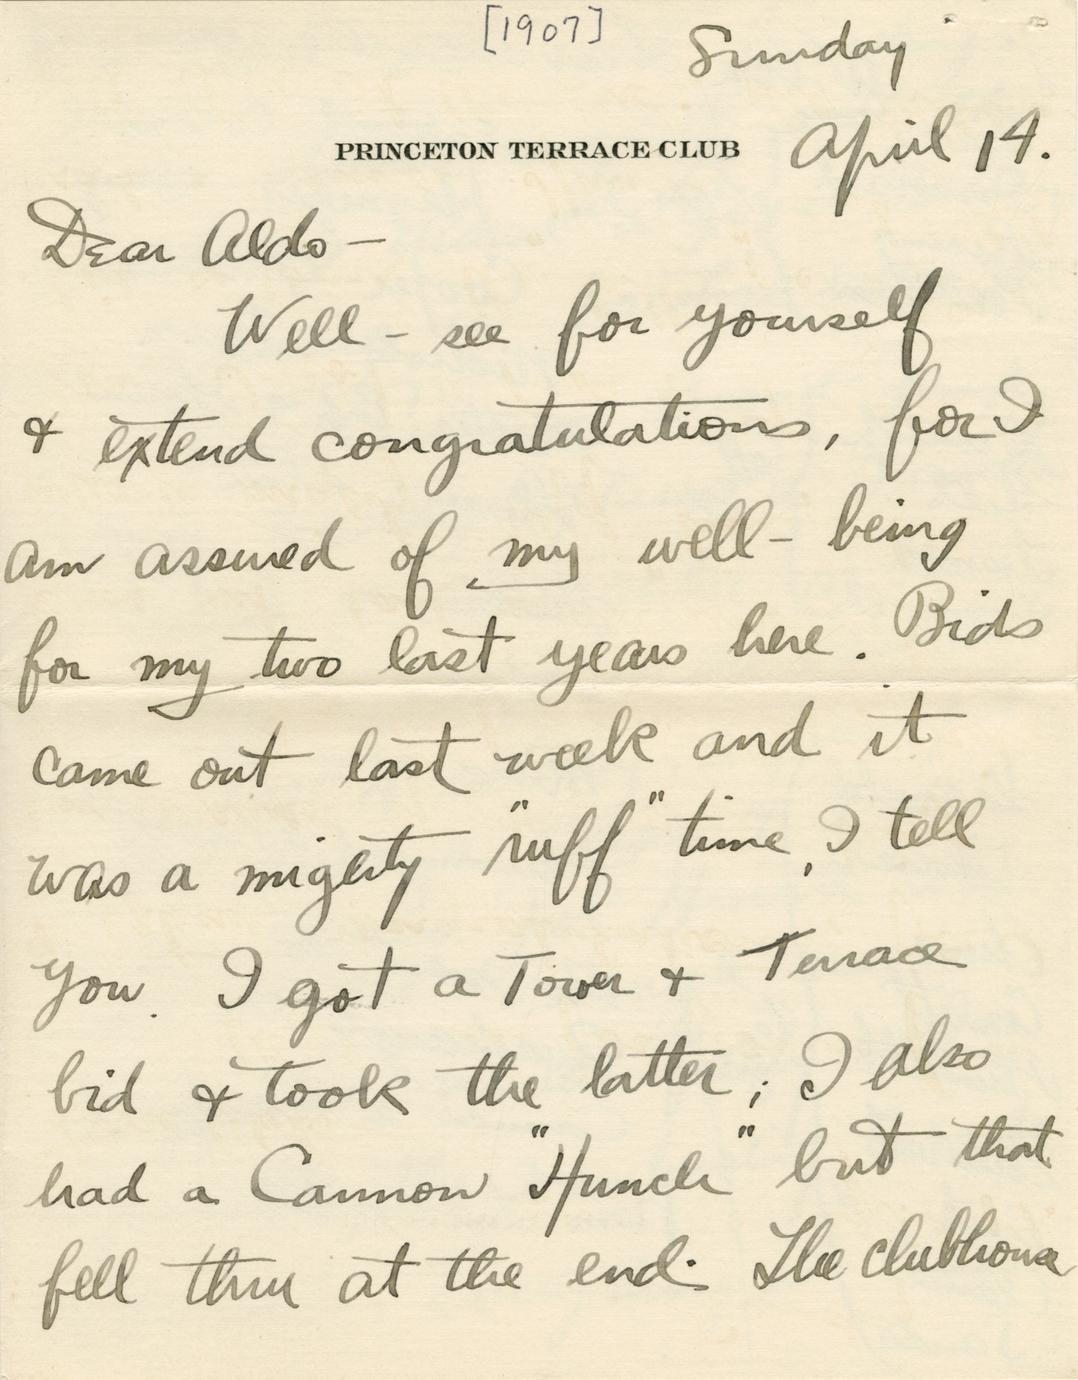 [1907]
Sunday
PRINCETON TERRACE CLUB April 14.
Dear Aldo —
Well - see for yourself
& extend congratulations, for I
am assured of my well - being
for my two last years here. Bids
came out last week and it
was a mighty "ruff" time, I tell
you. I got a Tower & Terrace
bid & took the latter; I also
had a Cannon "Hunch" but that
fell thru at the end. The clubhouse